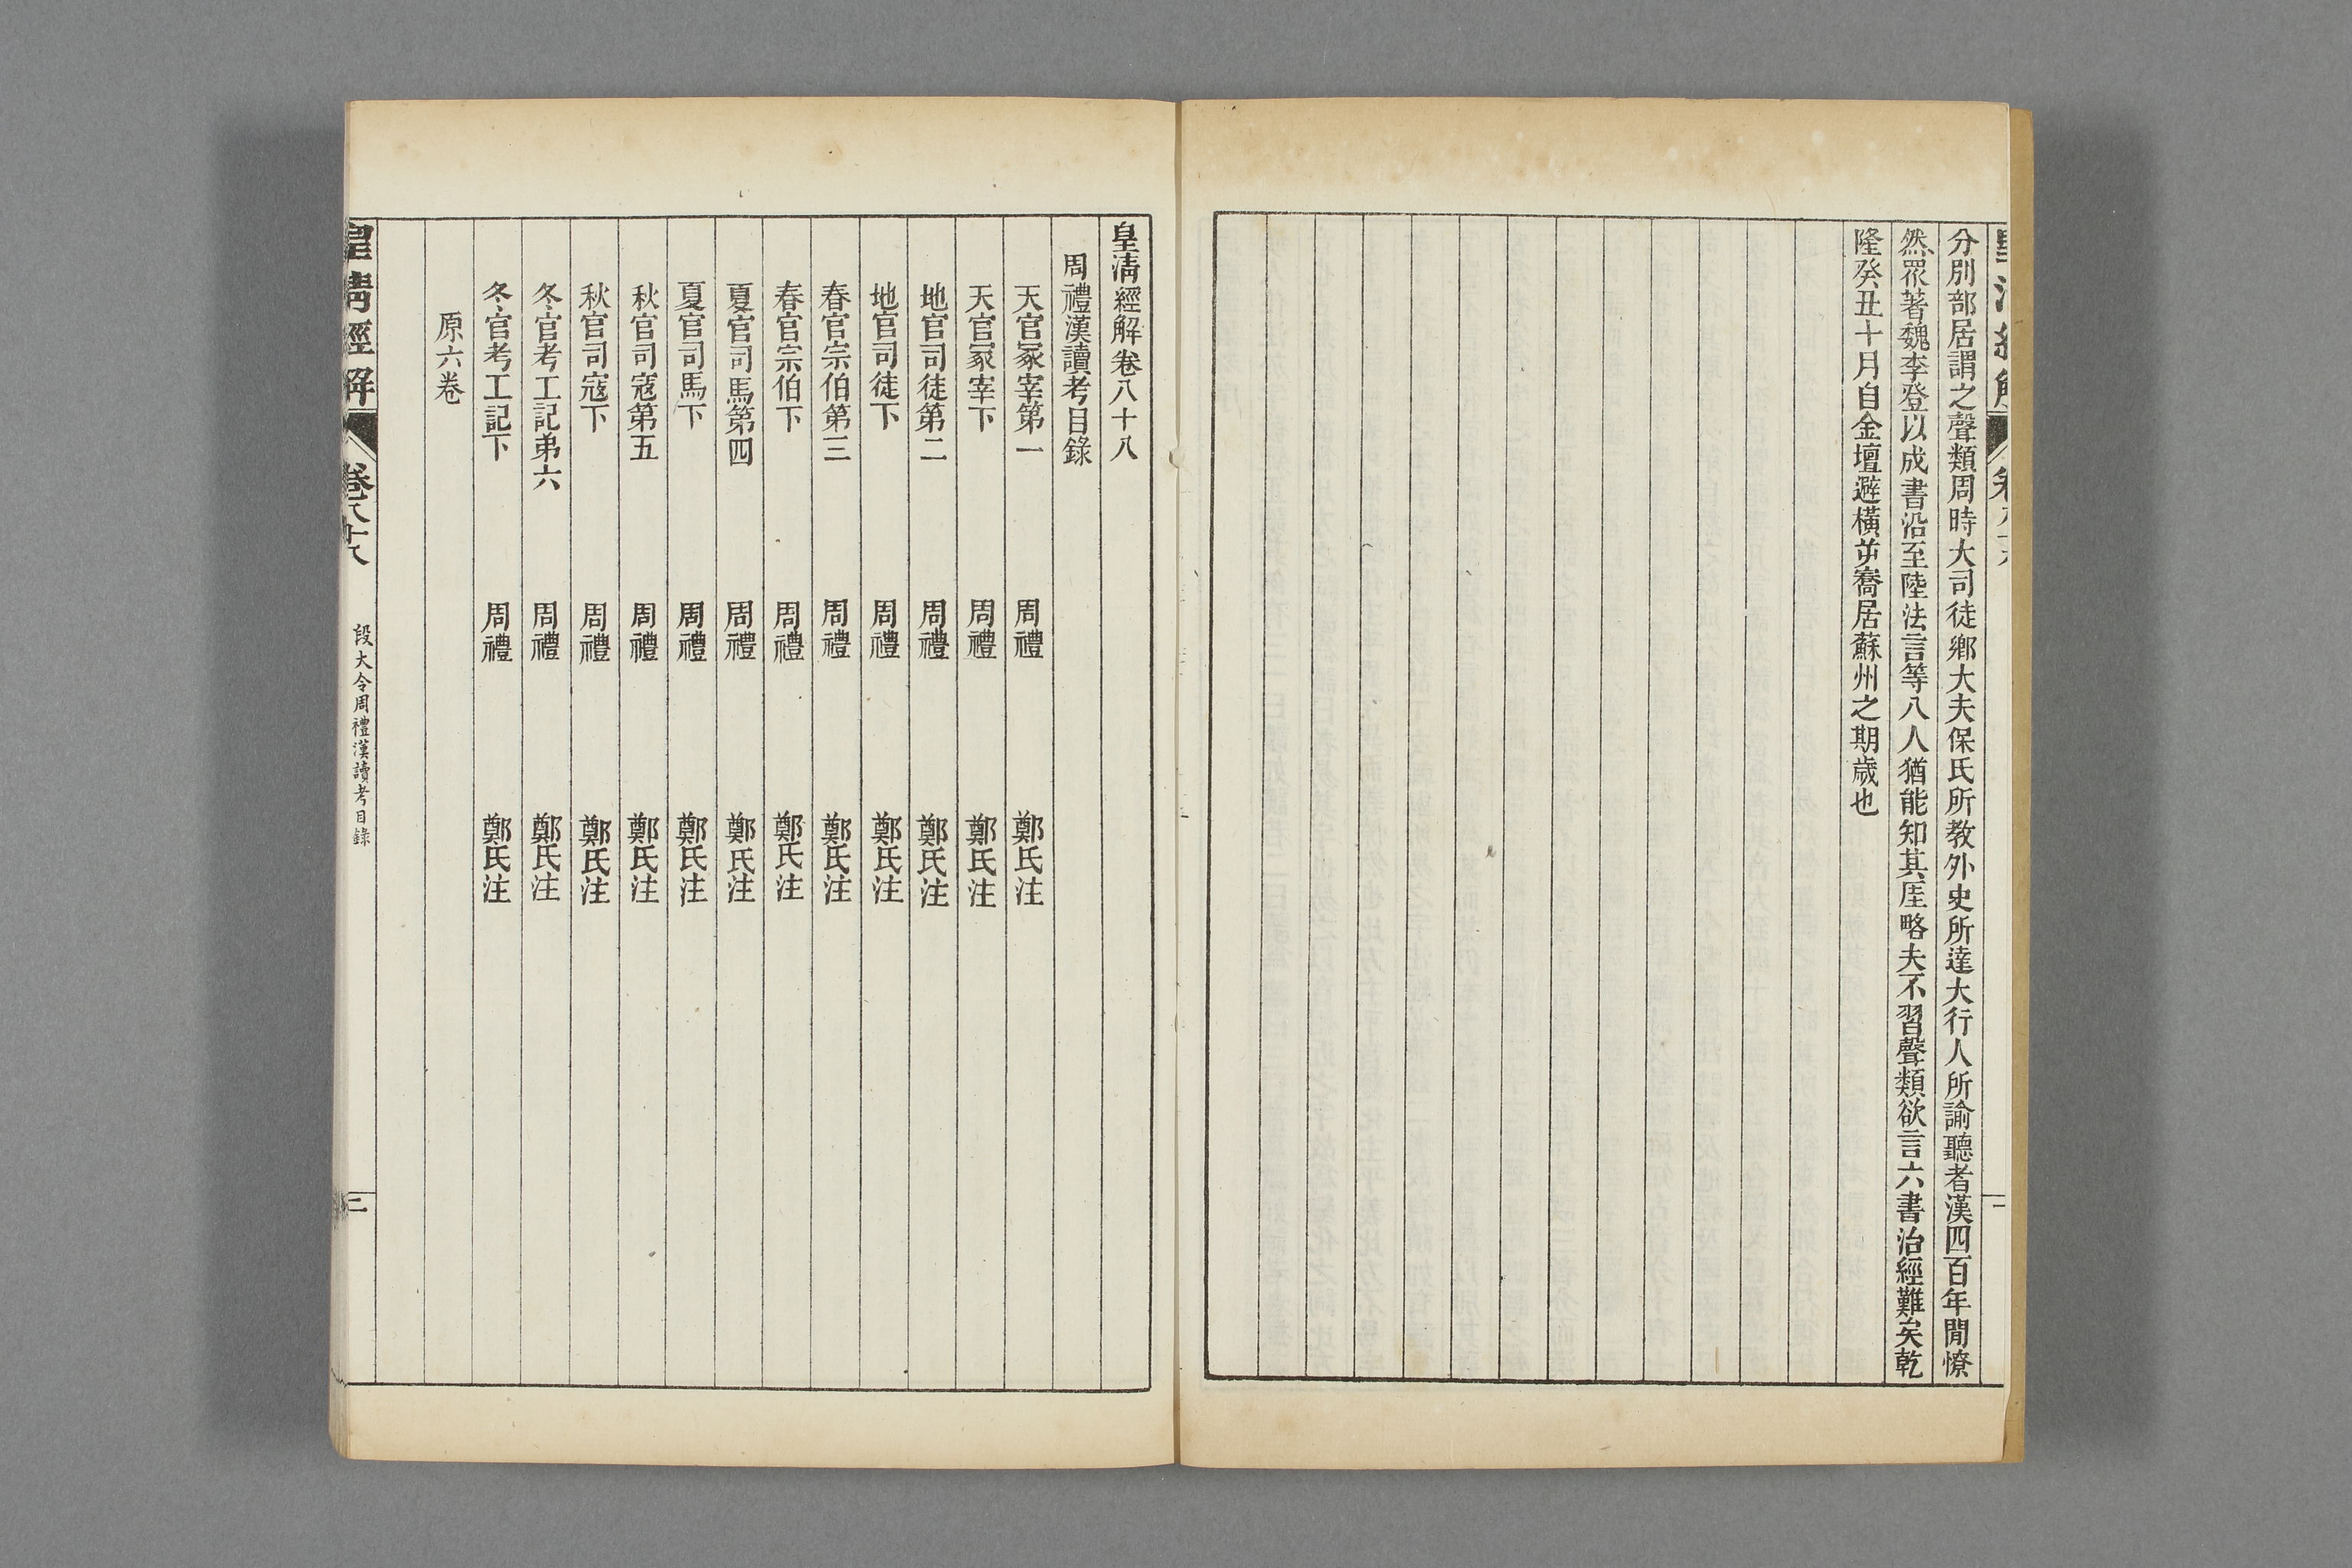 分別部居謂之聲類周時大司徒鄉大夫保氏所教外史所達大行人所諭聽者漢四百年閒憭
然眾著魏李登以成書沿至陸法言等八人猶能知其厓略夫不習聲類欲言六書治經難矣乾
隆癸丑十月自金壇避橫逆喬居蘇州之期歲也
皇淸經解卷八十八
周禮漢讀考目錄
天官冢宰第一 周禮 鄭氏注
天官冢宰下 周禮 鄭氏注
地官司徒第二 周禮 鄭氏注
地官司徒下 周禮 鄭氏注
春官宗伯第三 周禮 鄭氏注
春官宗伯下 周禮 鄭氏注
夏官司馬第四 周禮 鄭氏注
夏官司馬下 周禮 鄭氏注
秋官司寇第五 周禮 鄭氏注
秋官司寇下 周禮 鄭氏注
冬官考工記弟六 周禮 鄭氏注
冬官考工記下 周禮 鄭氏注
原六卷
皇淸經解 卷八十八 段大令周禮漢讀考目錄 二